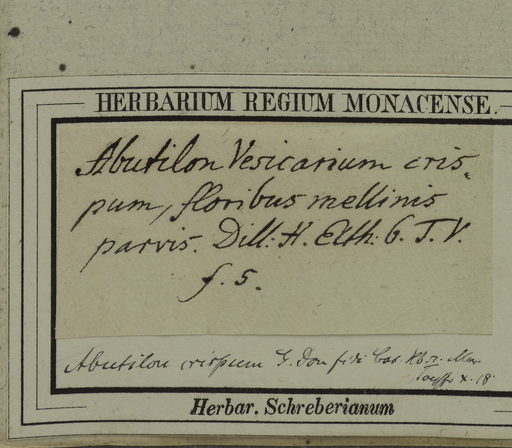 HERBARIUM REGIUM MONACENSE.
Abutilon Vesicarium cris-
pum, floribus mellinis
parvis. Dill: H. Elth: 6. T. V.
f. 5.
Abutilon crispum G. Don
Herbar. Schreberianum